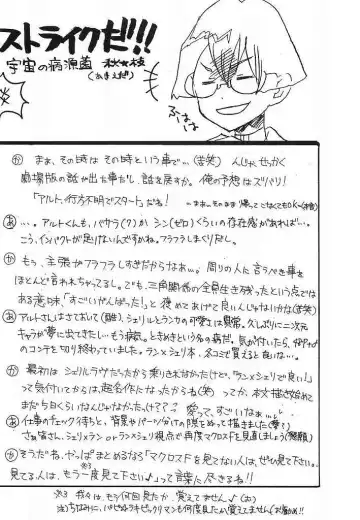 ストライクだ!!
宇宙の病源菌 秋★枝
(かまえだ)
か まぁ、その時はその時という事で…(苦笑) んじゃ、せっかく
劇場版の話が出た事だし、話を戻すか。俺の予想はズバリ!
「アルト、行方不明でスタート」だね!
…まぁ、そのまま帰ってこなくてもOK〜
あ …。アルトくんも、バサラ(7)か シン(ゼロ)くらいの存在感があれば…。
こう、インパクトが足りないんですかね。フラフラしまくりだし。
か もぅ、主張がフラフラしすぎだからなぁ…。周りの人に言うべき事を
ほとんど言われちゃってるし。でも、三角関係の全員生き残ったという点では
ある意味、「すごいがんばった!」と褒めてあげて良いんじゃないかな(苦笑)
あ アルトさんはさておいて(酷)、シェリルとランカの可愛さは異常。久しぶりに二次元
キャラが夢に出てきたし…もう病気。ときめきという名の病だ。気が付いたら、
のコンテを切り終わっていました。ラン×シェリ本、冬コミで買えると良いな…。
か 最初はシェリルラヴだったから乗りきれなかったけど、「ラン×シェリで良い!」
って気付いてからは、超名作になったからね(笑) ってか、本文描き始めて
まだ5日くらいなんじゃなかったっけ??? 愛って、すごいなぁ…♪
あ 仕事のチェック待ちと、背景やパーツ分けの隙をぬって描きました
さぁ皆さん、シェリ×ラン or ラン×シェリ視点で再度マクロスFを見直しましょう
か そうだね、やっぱまとめるなら「マクロスFを見てない人は、ぜひ見て下さい。
見てる人は、もう一度見て下さい♪」って言葉に尽きるね!!
※3
※3 我々は、もう何回見たか、覚えてません♪